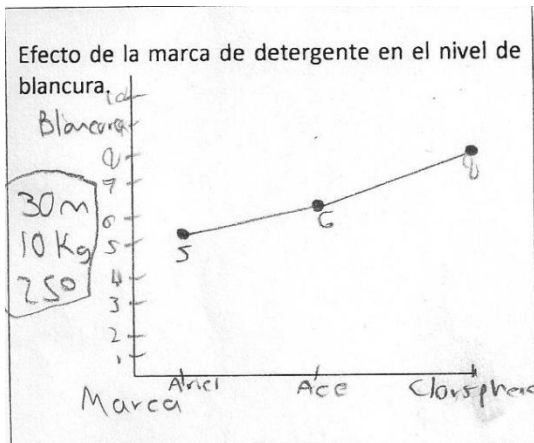 Efecto de la marca de detergente en el nivel de
blancura.
10
Blancura
8
7
6
5
4
3
2
1
30 m
10 Kg
250
5
6
8
Ariel
Ace
Clorsphere
Marca